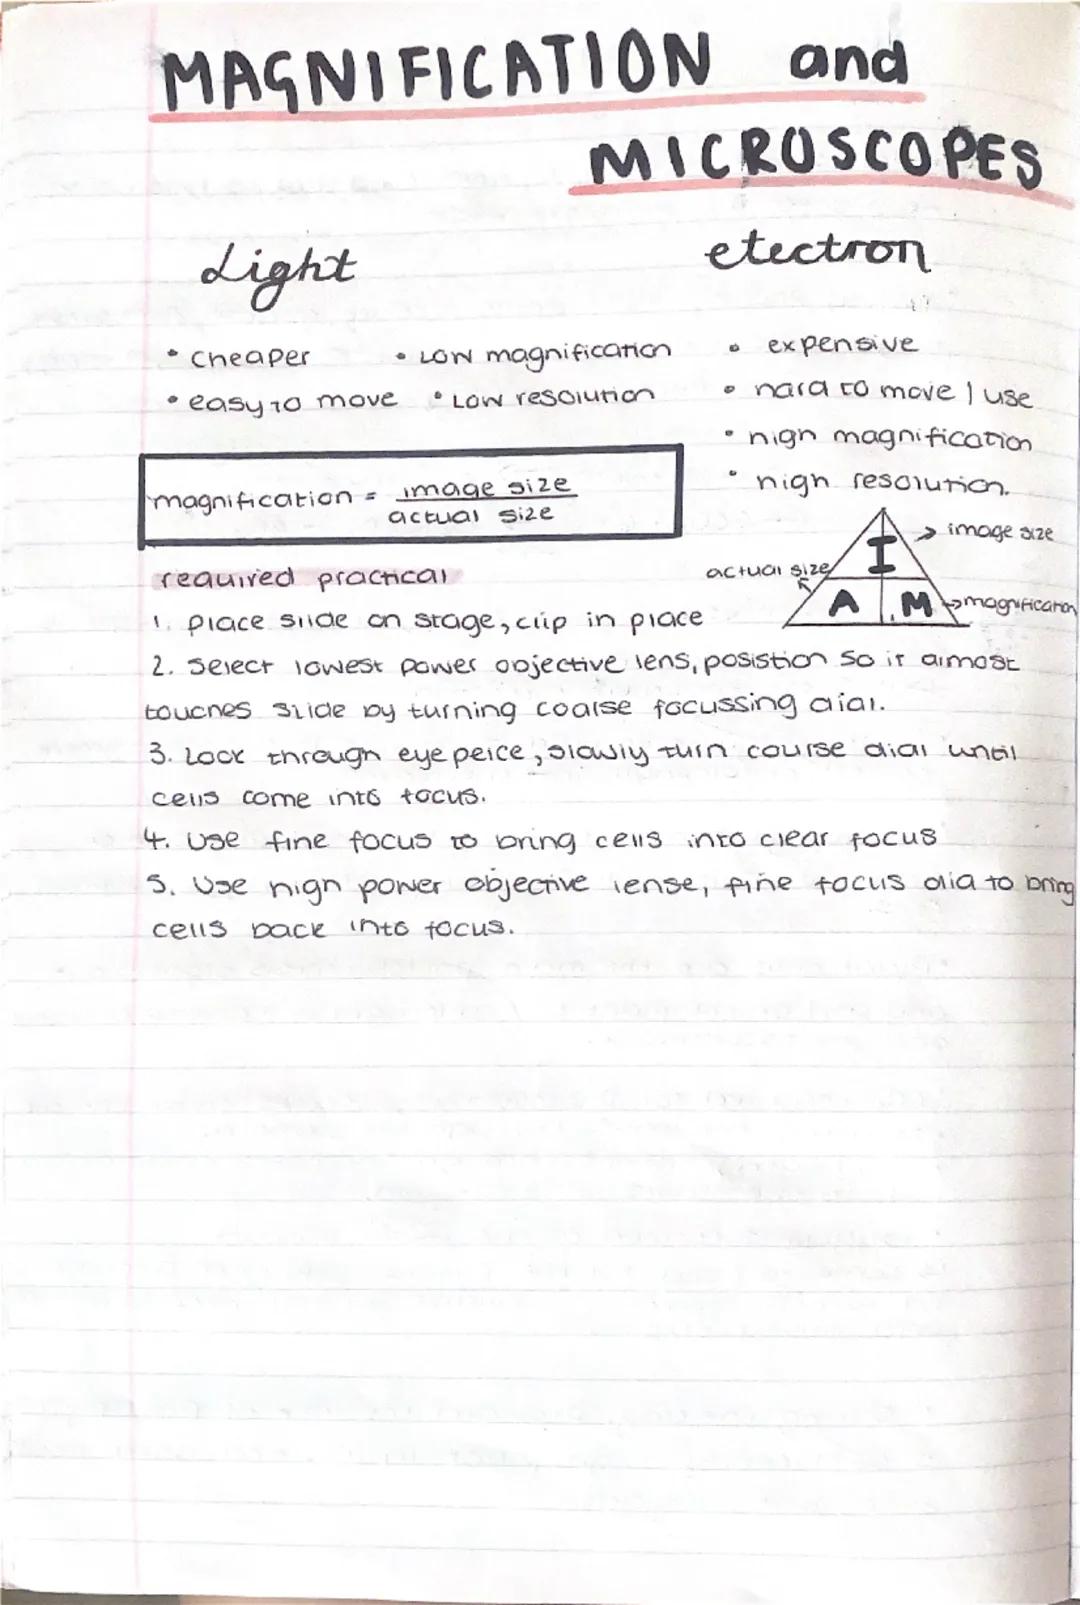 MAGNIFICATION and
MICROSCOPES
Light
electron
• cheaper • Low magnification
• easy to move • Low resolution
• expensive
• hard to move / use
• high magnification
• high resolution.
magnification = image size
actual size
I → image size
actual size A M → magnification
required practical
1. Place slide on stage, clip in place
2. Select lowest power objective lens, posistion so it almost
touches slide by turning coarse focussing dial.
3. Look through eye peice, slowly turn course dial until
cells come into focus.
4. Use fine focus to bring cells into clear focus
5. Use high power objective lense, fine focus dia to bring
cells back into focus.